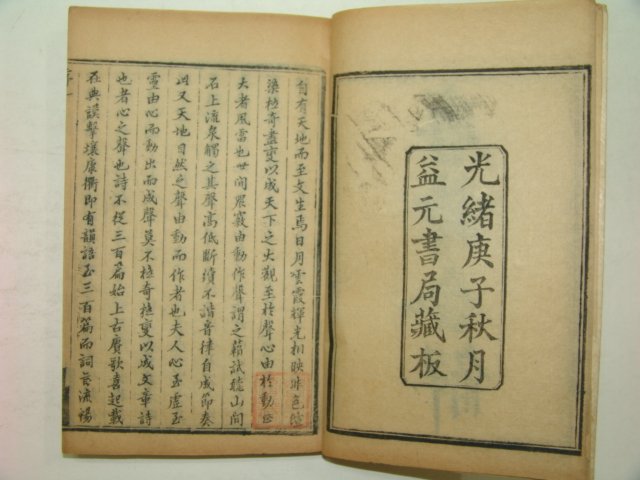 光緒庚子秋月
益元書局藏板
自有天地而至文生焉日月雲霞輝光相映
染極奇盡變以成天下之大觀至於聲心由於動
大者風雷也世間眾竅由動作聲謂之籟試聽山間
石上流泉觸之其聲高低斷續不諧音律自成節奏
此又天地自然之聲由動而作者也夫人心至虛至
靈由心而動出而成聲莫不極奇極變以成文章詩
也者心之聲也詩不從三百篇始上古賡歌喜起載
在典謨擊壤康衢即有韻語至三百篇而詞